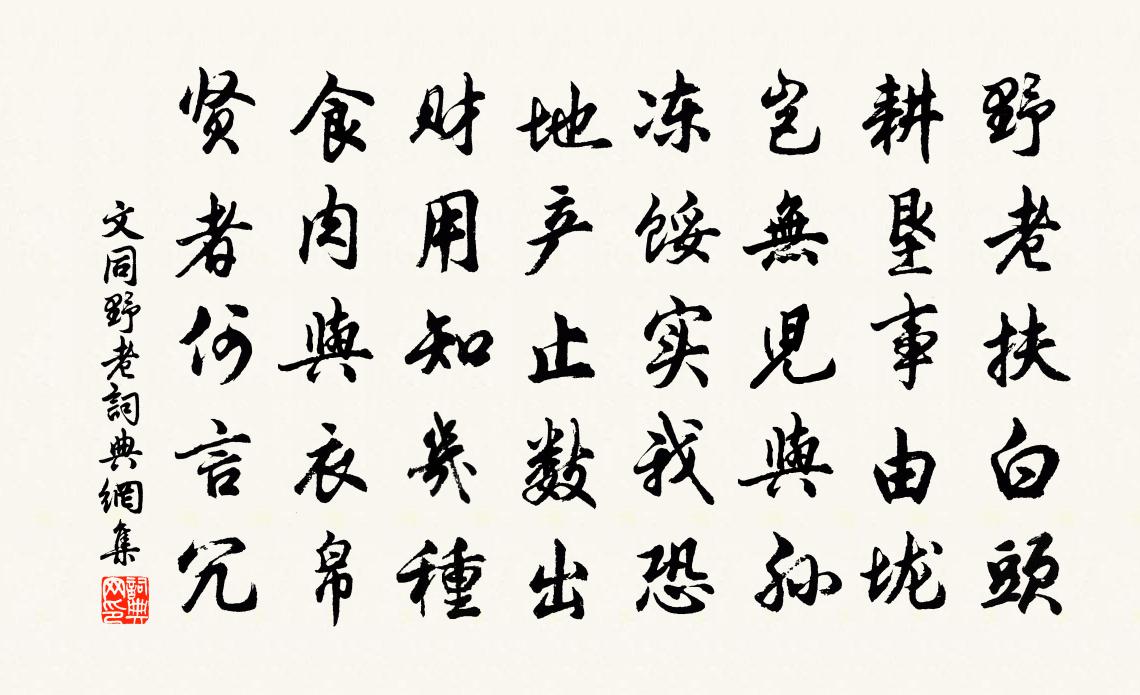 野老扶白頭
耕垦事由垅
岂無児與孙
冻馁实我恐
地产止数出
财用知幾種
食肉與衣帛
贤者何言冗
文同野老詞典網集
詞典网印